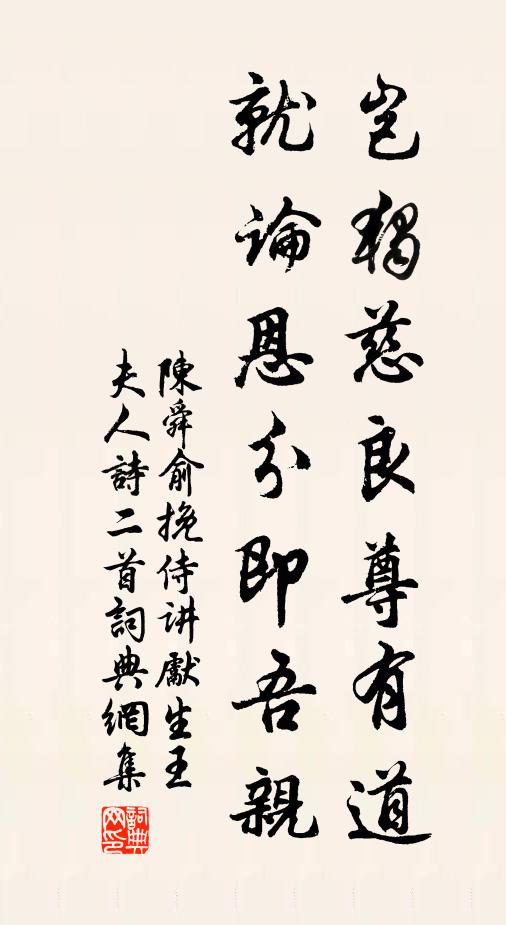 豈獨慈良尊有道
就論恩分即吾親
陳舜俞挽侍讲獻生王
夫人詩二首詞典網集
詞典
网印